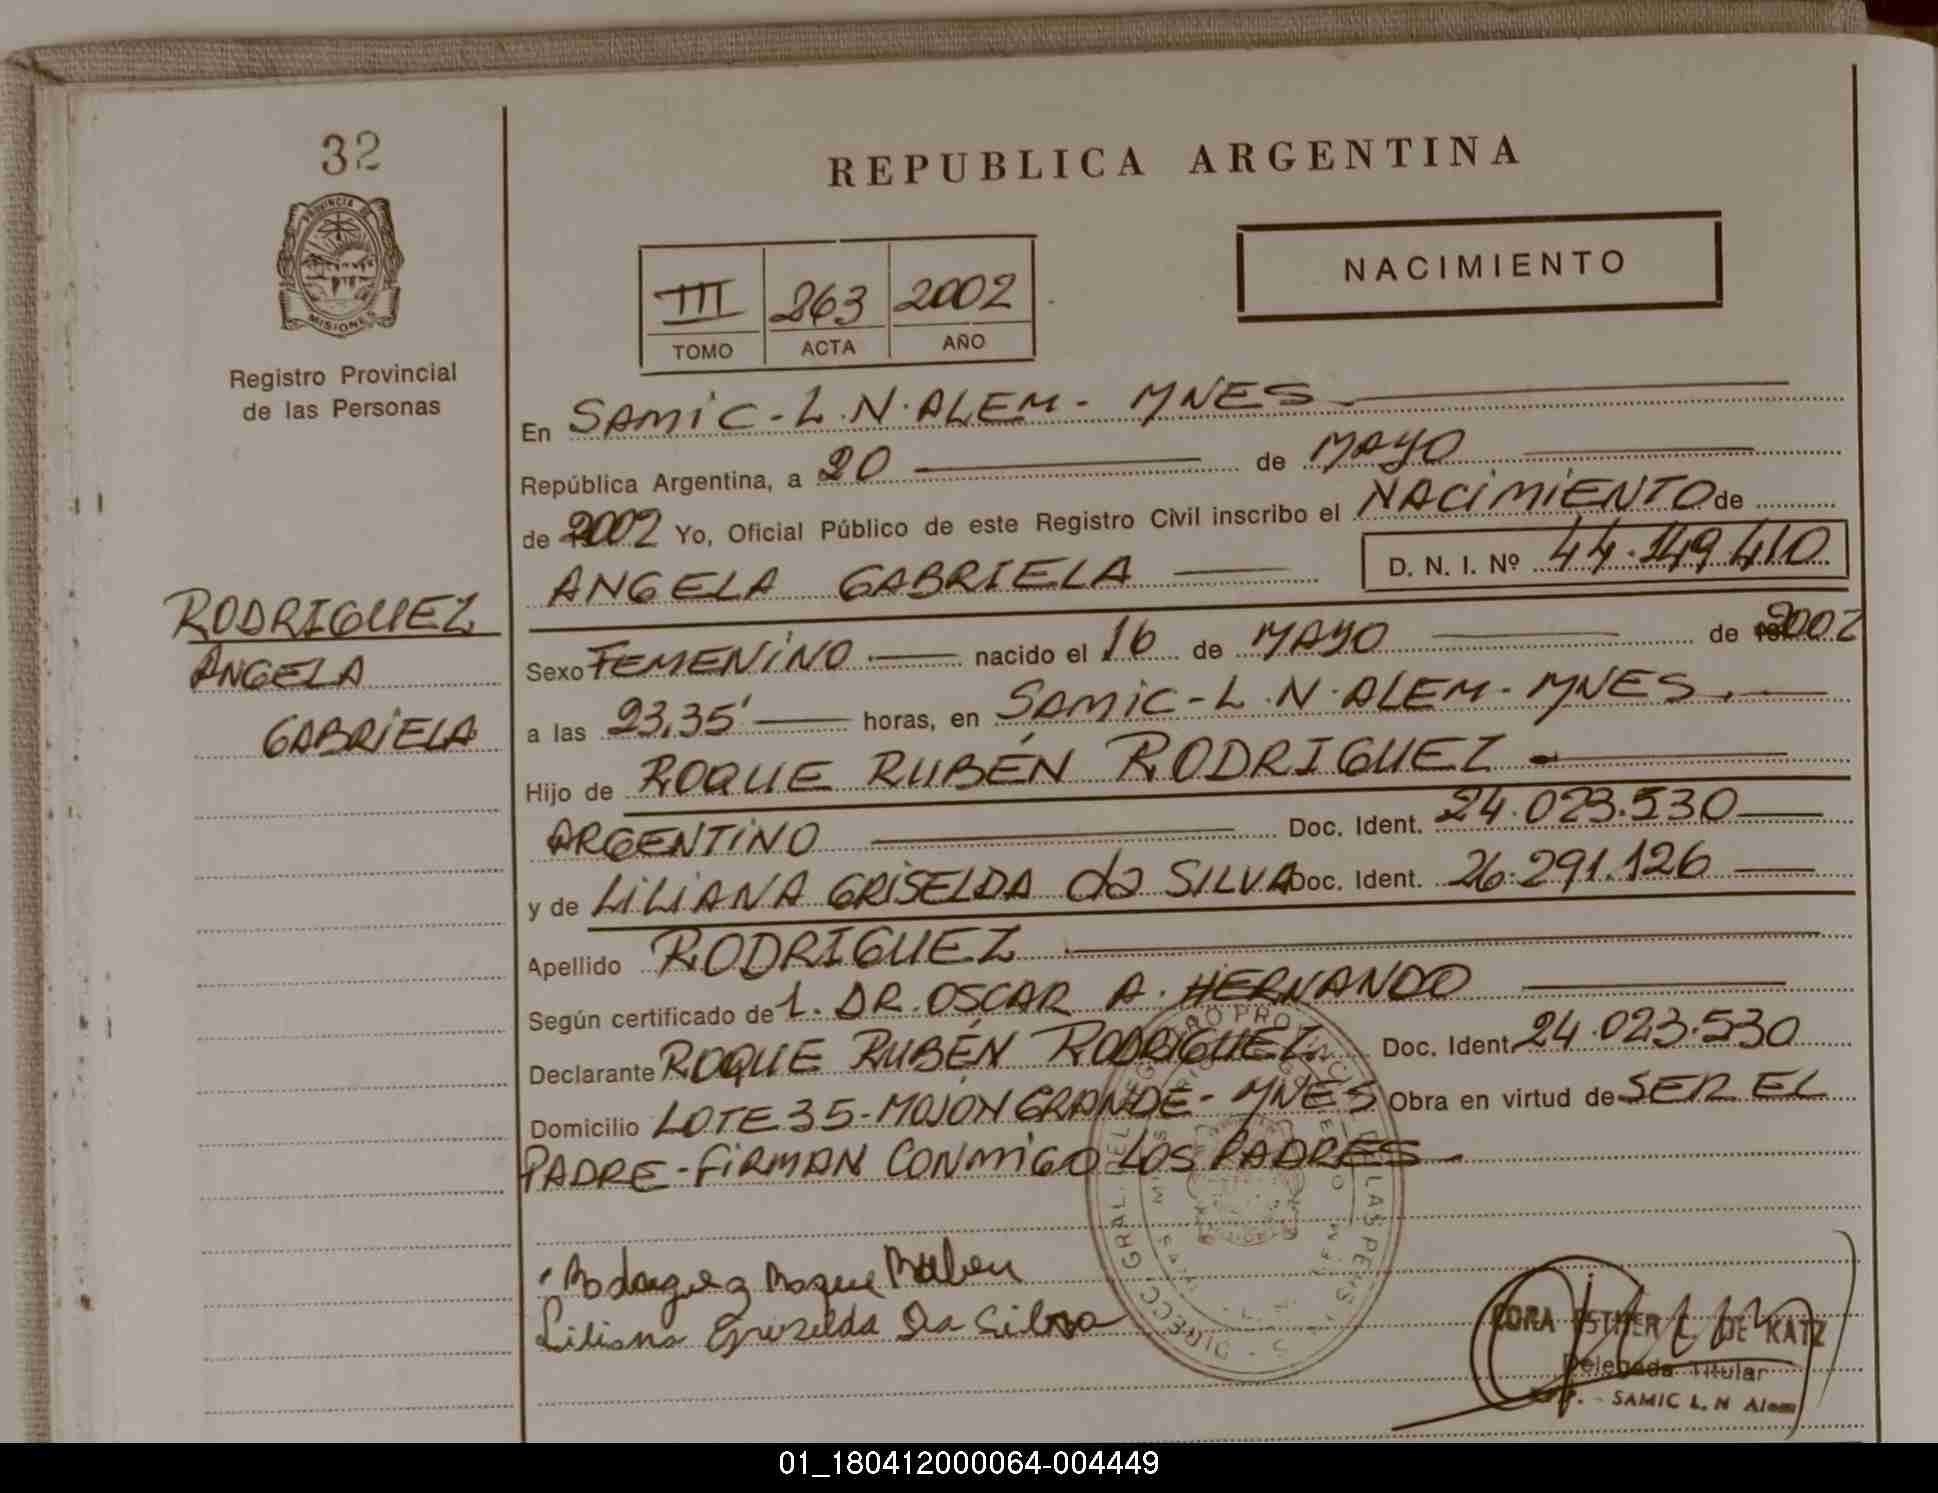 32
PROVINCIA DE
MISIONES
Registro Provincial
de las Personas
RODRIGUEZ
ANGELA
GABRIELA
REPUBLICA ARGENTINA
NACIMIENTO
III 263 2002
TOMO ACTA AÑO
En SAMIC-L.N.ALEM- MNES
República Argentina, a 20 de MAYO
de 2002 Yo, Oficial Público de este Registro Civil inscribo el NACIMIENTO de
ANGELA GABRIELA D. N. I. Nº 44.149.410
Sexo FEMENINO nacido el 16 de MAYO de 2002
a las 23,35' horas, en SAMIC-L.N.ALEM-MNES.
Hijo de ROQUE RUBÉN RODRIGUEZ
ARGENTINO Doc. Ident. 24.023.530
y de LILIANA GRISELDA da SILVA Doc. Ident. 26.291.126
Apellido RODRIGUEZ
Según certificado de 1. DR. OSCAR A. HERNANDO
Declarante ROQUE RUBÉN RODRIGUEZ Doc. Ident. 24.023.530
Domicilio LOTE 35-MOJON GRANDE-MNES Obra en virtud de SER EL
PADRE-FIRMAN CONMIGO LOS PADRES-
Rodriguez Roque Ruben
Liliana Griselda Da Silva
CORA ESTHER L. DE KATZ
Delegada Titular
SAMIC L. N Alem
01_180412000064-004449